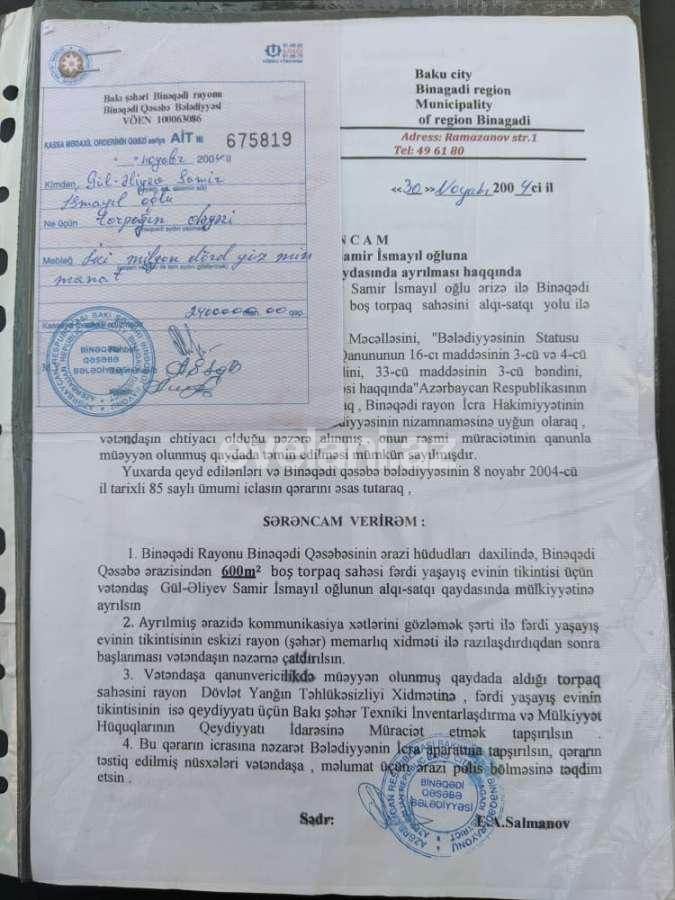 Bakı şəhəri Binəqədi rayonu
Binəqədi Qəsəbə Bələdiyyəsi
VÖEN 100063086
KASSA MƏDAXİL ORDERİNİN QƏBZİ seriya AİT № 675819
noyabr 2004 il
Kimdən Gül-Əliyev Samir
İsmayıl oğlu
Nə üçün torpağın dəyəri
Məbləğ İki milyon dörd yüz min
manat
2400000.00
Baku city
Binagadi region
Municipality
of region Binagadi
Adress: Ramazanov str.1
Tel: 49 61 80
«30» Noyabr 2004 ci il
NCAM
Samir İsmayıl oğluna
qaydasında ayrılması haqqında
Samir İsmayıl oğlu ərizə ilə Binəqədi
boş torpaq sahəsini alqı-satqı yolu ilə
Məcəlləsini, "Bələdiyyəsinin Statusu
Qanununun 16-cı maddəsinin 3-cü və 4-cü
33-cü maddəsinin 3-cü bəndini,
haqqında"Azərbaycan Respublikasının
, Binəqədi rayon İcra Hakimiyyətinin
nizamnaməsinə uyğun olaraq ,
vətəndaşın ehtiyacı olduğu nəzərə alınmış , onun rəsmi müraciətinin qanunla
müəyyən olunmuş qaydada təmin edilməsi mümkün sayılmışdır.
Yuxarda qeyd edilənləri və Binəqədi qəsəbə bələdiyyəsinin 8 noyabr 2004-cü
il tarixli 85 saylı ümumi iclasın qərarını əsas tutaraq ,
evelani.az
SƏRƏNCAM VERİRƏM :
1. Binəqədi Rayonu Binəqədi Qəsəbəsinin ərazi hüdudları daxilində, Binəqədi
Qəsəbə ərazisindən 600m² boş torpaq sahəsi fərdi yaşayış evinin tikintisi üçün
vətəndaş Gül-Əliyev Samir İsmayıl oğlunun alqı-satqı qaydasında mülkiyyətinə
ayrılsın
2. Ayrılmış ərazidə kommunikasiya xətlərini gözləmək şərti ilə fərdi yaşayış
evinin tikintisinin eskizi rayon (şəhər) memarlıq xidməti ilə razılaşdırdıqdan sonra
başlanması vətəndaşın nəzərnə çatdırılsın.
3. Vətəndaşa qanunvericilikdə müəyyən olunmuş qaydada aldığı torpaq
sahəsini rayon Dövlət Yanğın Təhlükəsizliyi Xidmətinə , fərdi yaşayış evinin
tikintisinin isə qeydiyyatı üçün Bakı şəhər Texniki İnventarlaşdırma və Mülkiyyət
Hüquqlarının Qeydiyyatı İdarəsinə Müraciət etmək tapşırılsın
4. Bu qərarın icrasına nəzarət Bələdiyyənin İcra aparatına tapşırılsın, qərarın
təstiq edilmiş nüsxələri vətəndaşa , məlumat üçün ərazi polis bölməsinə təqdim
etsin .
BİNƏQƏDİ
QƏSƏBƏ
BƏLƏDİYYƏSİ
Sədr: E.A.Salmanov